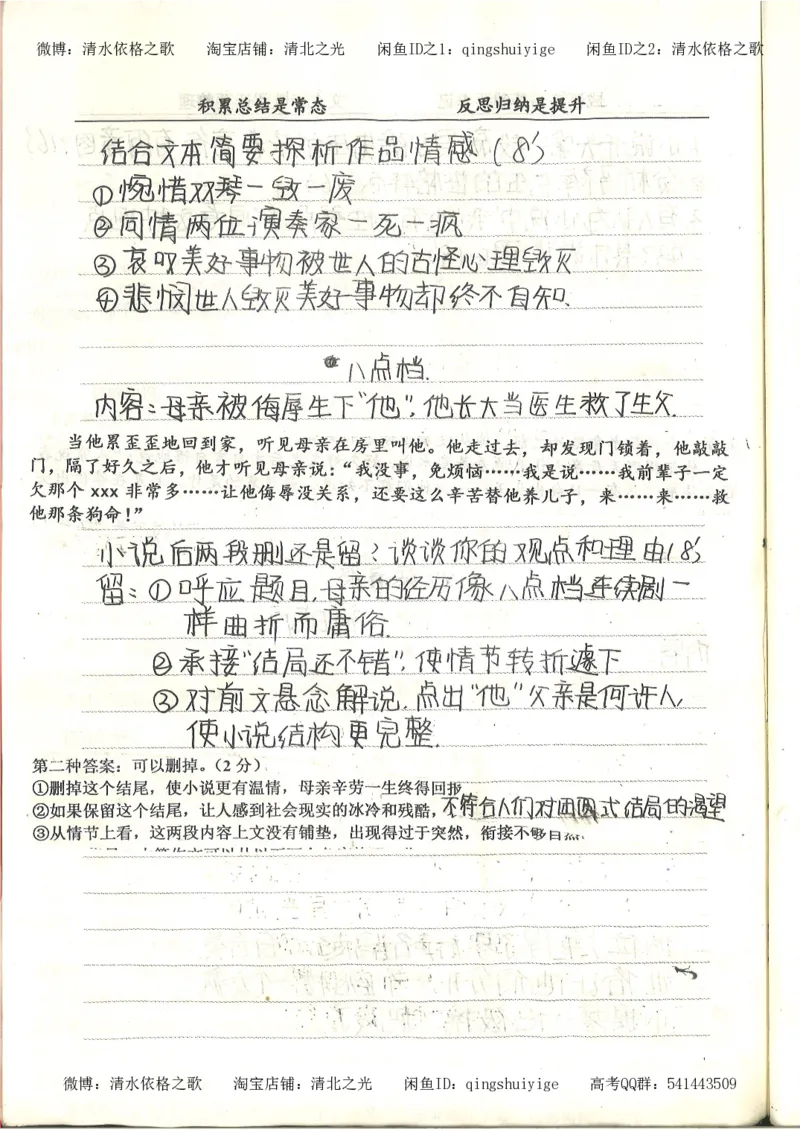 微博：清水依格之歌 淘宝店铺：清北之光 闲鱼ID之1：qingshuiyige 闲鱼ID之2：清水依格之歌
积累总结是常态 反思归纳是提升
结合文本简要探析作品情感（8'）
①惋惜双琴一毁一废
②同情两位演奏家一死一疯
③哀叹美好事物被世人的古怪心理毁灭
④悲悯世人毁灭美好事物却终不自知.
八点档.
内容：母亲被侮辱生下“他”，他长大当医生救了生父.
当他累歪歪地回到家，听见母亲在房里叫他。他走过去，却发现门锁着，他敲敲
门，隔了好久之后，他才听见母亲说：“我没事，免烦恼……我是说……我前辈子一定
欠那个 xxx 非常多……让他侮辱没关系，还要这么辛苦替他养儿子，来……来……救
他那条狗命！”
小说后两段删还是留？谈谈你的观点和理由(8')
留：①呼应题目，母亲的经历像八点档连续剧一
样曲折而庸俗.
②承接“结局还不错”，使情节转折遽下
③对前文悬念解说，点出“他”父亲是何许人，
使小说结构更完整.
第二种答案：可以删掉。（2 分）
①删掉这个结尾，使小说更有温情，母亲辛劳一生终得回报
②如果保留这个结尾，让人感到社会现实的冰冷和残酷，不符合人们对团圆式结局的渴望
③从情节上看，这两段内容上文没有铺垫，出现得过于突然，衔接不够自然
微博：清水依格之歌 淘宝店铺：清北之光 闲鱼ID：qingshuiyige 高考QQ群：541443509